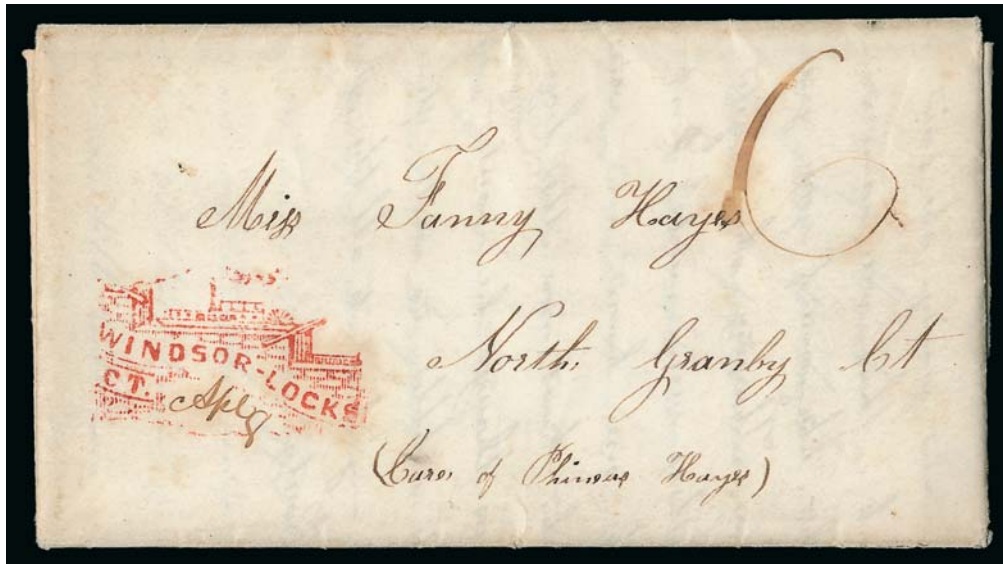 6
Miss Fanny Hayes
North Granby Ct
(Care of Phineas Hayes)
WINDSOR-LOCKS
CT. Apl 8